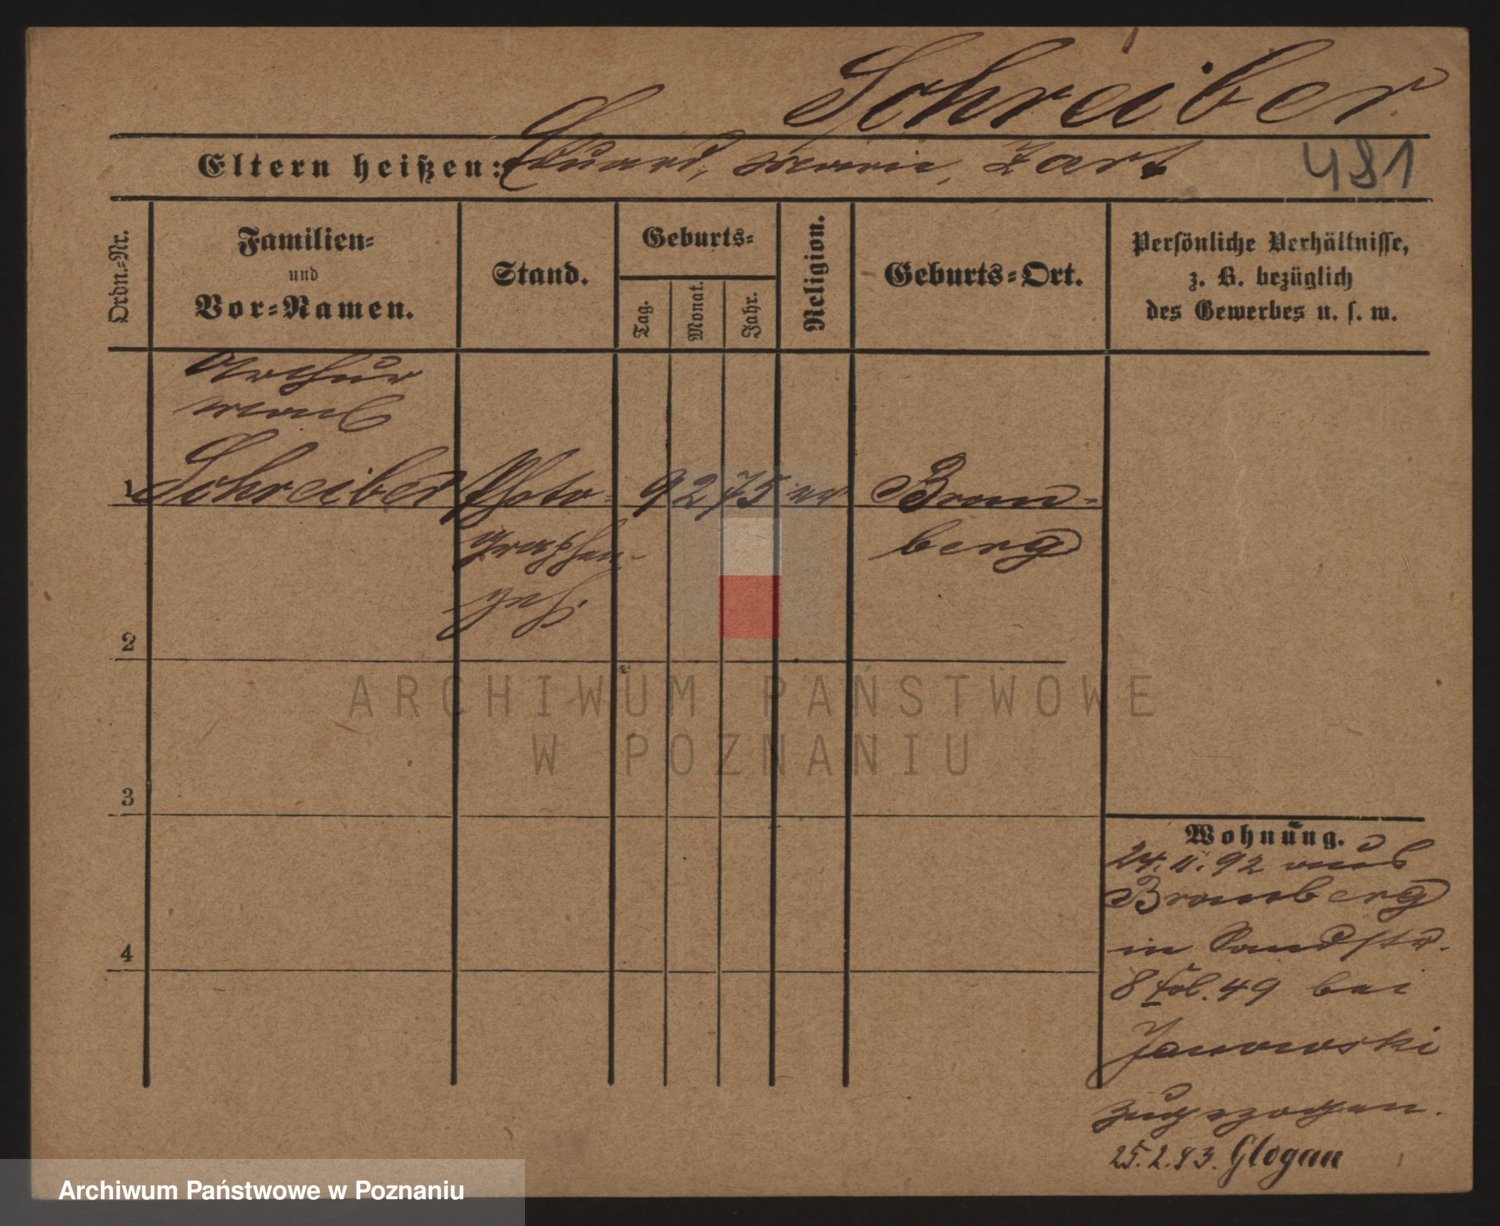 Schreiber
Eltern heißen: Eduard, Marie, Zart
481
Ordn.-Nr.
Familien-
und
Vor-Namen.
Stand.
Geburts-
Tag.
Monat.
Jahr.
Religion.
Geburts-Ort.
Persönliche Verhältnisse,
z. B. bezüglich
des Gewerbes u. s. w.
Arthur
1 Schreiber Photo- 9 2 75 ev Brom-
graphen- berg
geh.
2
3
4
ARCHIWUM PAŃSTWOWE
W POZNANIU
Wohnung.
24. 11. 92 aus
Bromberg
in Sandstr.
8 Fol. 49 bei
Janowski
zugezogen.
25.2.93. Glogau
Archiwum Państwowe w Poznaniu